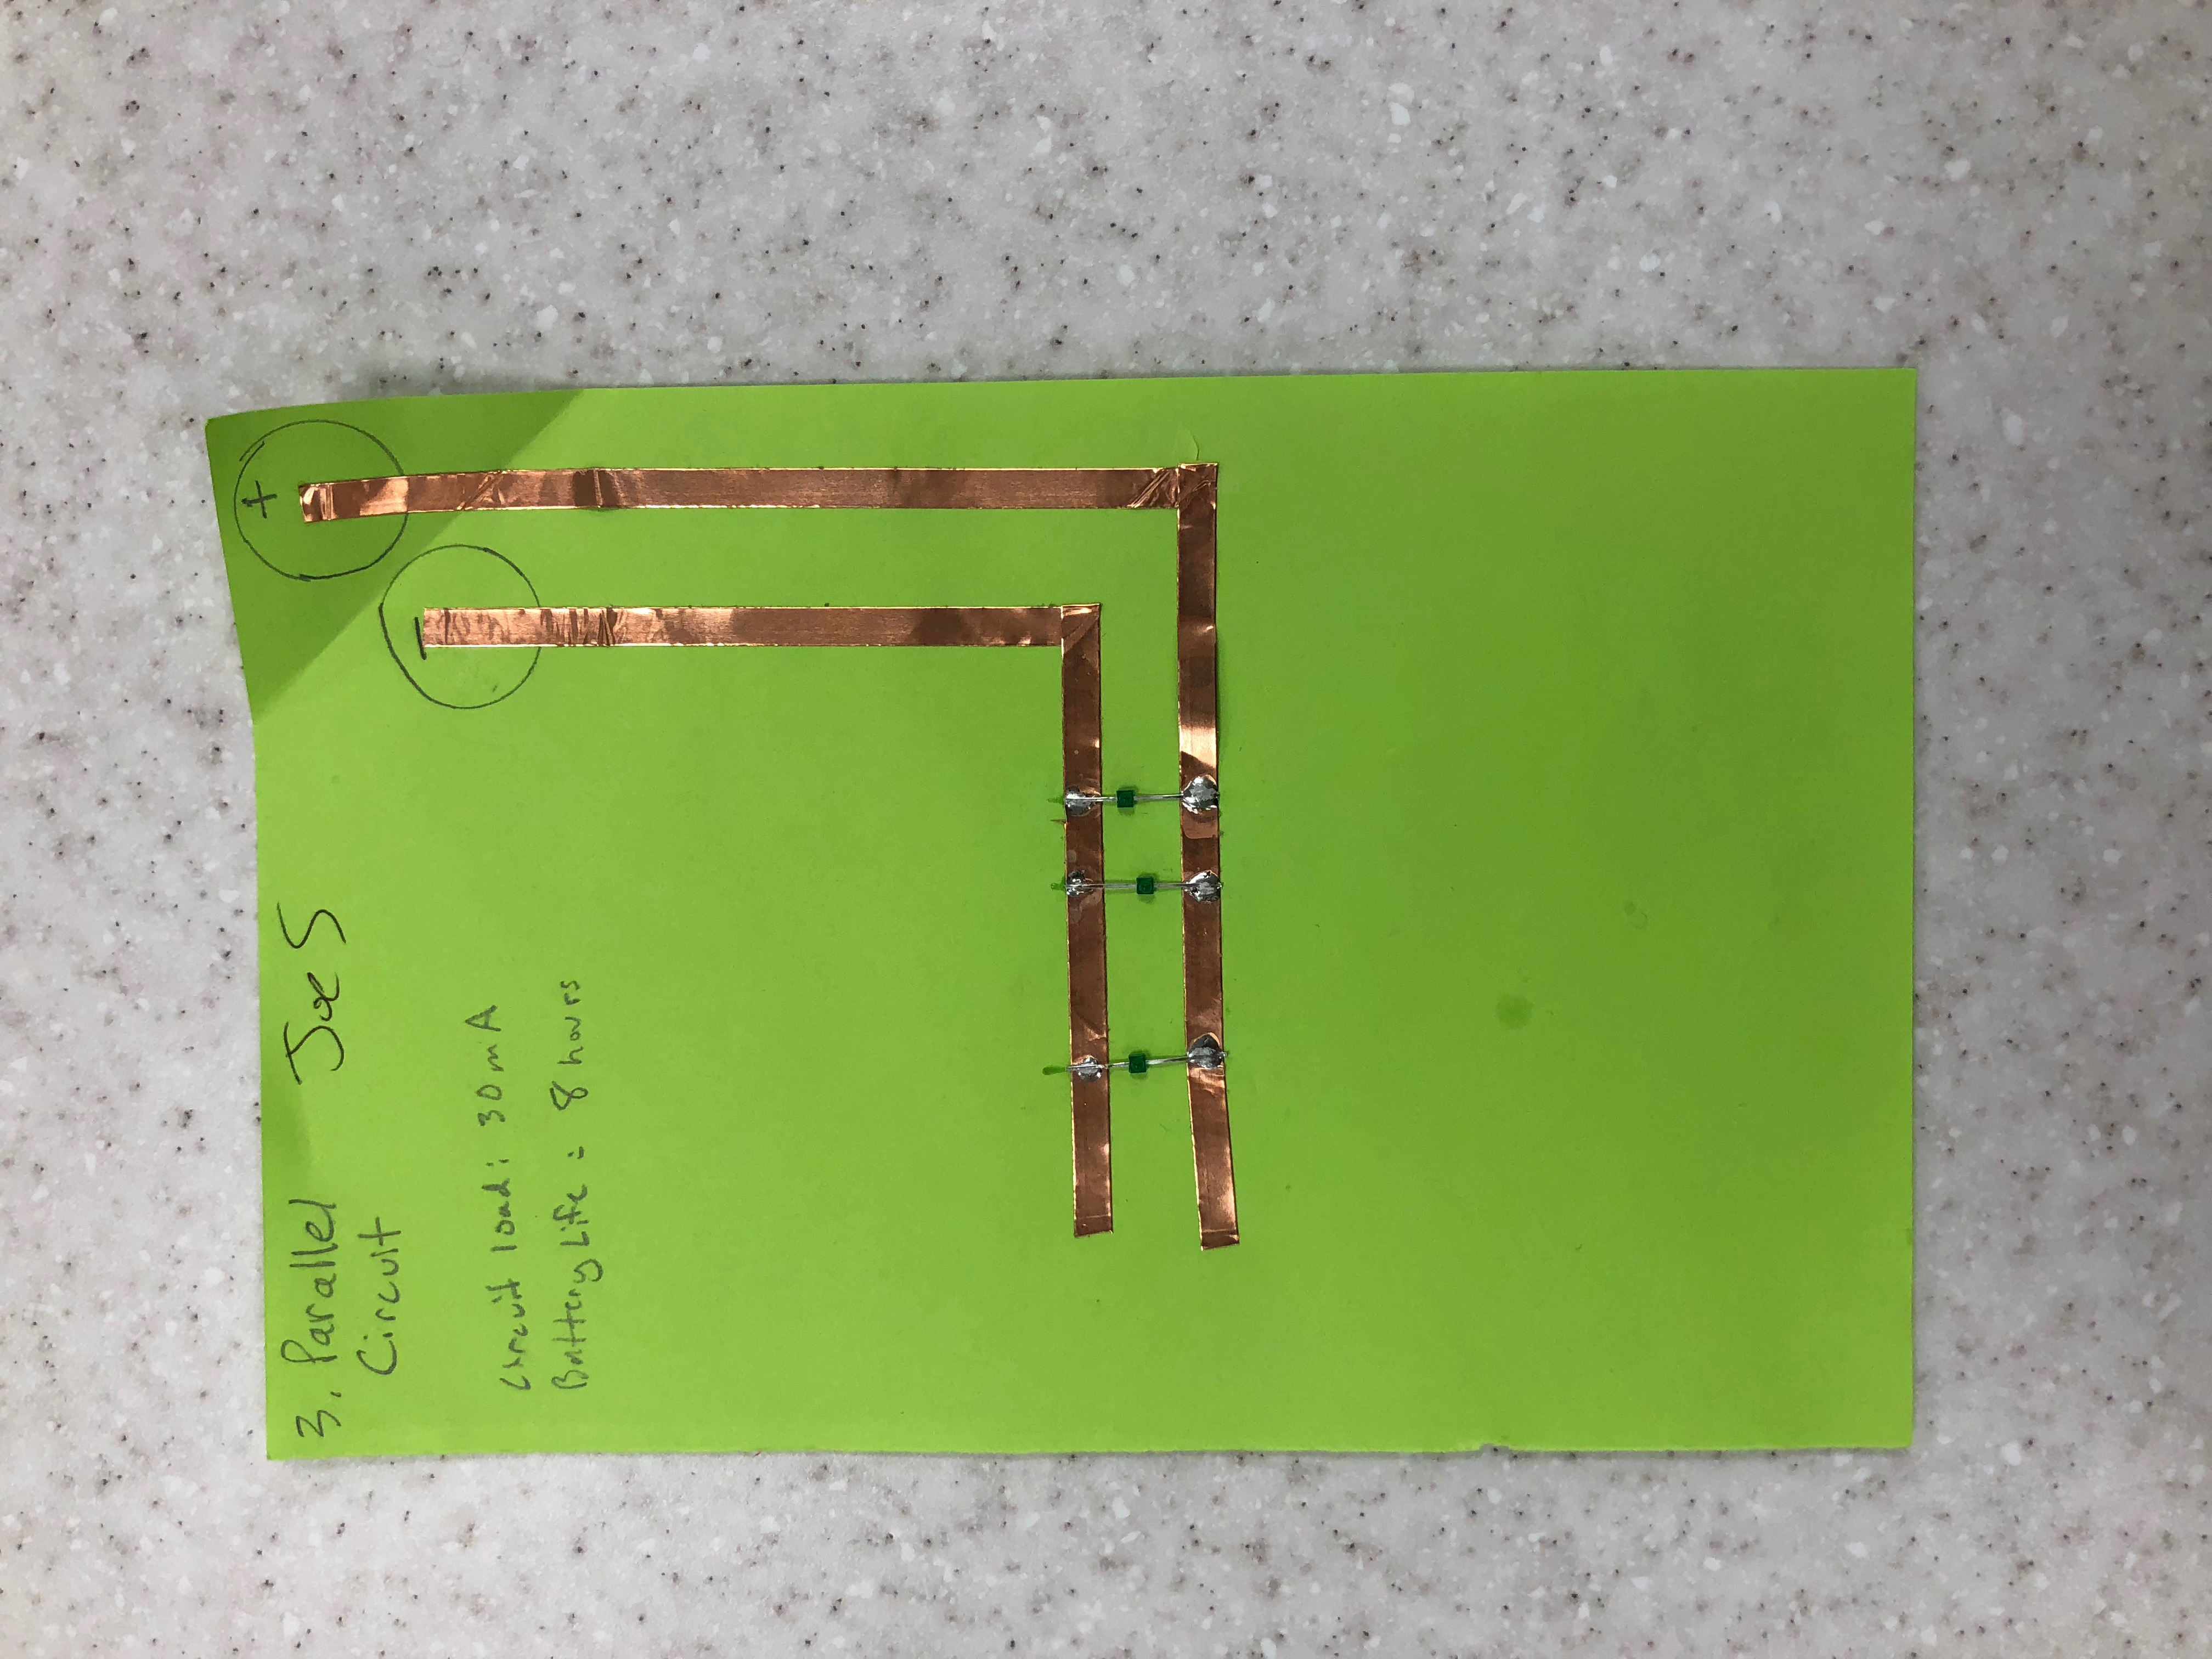 3. Parallel Joe S
Circuit
Circuit load: 30mA
Battery Life: 8 hours
+
-